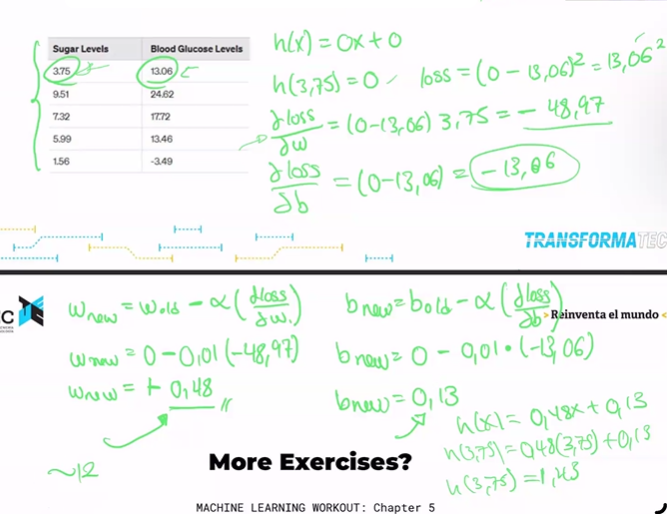 Sugar Levels Blood Glucose Levels
3.75 13.06
9.51 24.62
7.32 17.72
5.99 13.46
1.56 -3.49
h(x) = 0x + 0
h(3,75) = 0 loss = (0 - 13,06)² = 13,06²
∂loss/∂w = (0-13,06) 3,75 = - 48,97
∂loss/∂b = (0-13,06) = -13,06
TRANSFORMATEC
Reinventa el mundo
w new = w old - α (∂loss/∂w)
w new = 0 - 0,01 (-48,97)
w new = + 0,48
~12
b new = b old - α (∂loss/∂b)
b new = 0 - 0,01 • (-13,06)
b new = 0,13
h(x) = 0,48x + 0,13
h(3,75) = 0,48(3,75) + 0,13
h(3,75) = 1,43
More Exercises?
MACHINE LEARNING WORKOUT: Chapter 5